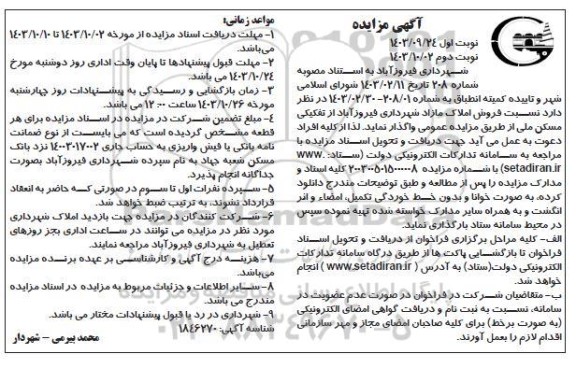 آگهی مزایده
نوبت اول ۱۴۰۳/۰۹/۲۴
نوبت دوم ۱۴۰۳/۱۰/۰۲
شهرداری فیروزآباد به استناد مصوبه
شماره ۲۰۸ تاریخ ۱۴۰۳/۰۲/۱۱ شورای اسلامی
شهر و تاییده کمیته انطباق به شماره ۲۰۸/۰۱-۱۴۰۳/۰۲/۳۰ در نظر
دارد نسبت فروش املاک مازاد شهرداری فیروزآباد از تفکیکی
مسکن ملی از طریق مزایده عمومی واگذار نماید. لذا از کلیه افراد
دعوت به عمل می آید جهت دریافت و تحویل اسناد مزایده با
مراجعه به سامانه تدارکات الکترونیکی دولت (ستاد: www.
setadiran.ir) با شماره مزایده ۲۰۰۳۰۰۵۰۱۵۰۰۰۰۰۸ کلیه اسناد و
مدارک مزایده را پس از مطالعه و طبق توضیحات مندرج دانلود
کرده، به صورت خوانا و بدون خط خوردگی تکمیل، امضاء و اثر
انگشت و به همراه سایر مدارک خواسته شده تهیه نموده سپس
در محیط سامانه ستاد بارگذاری نماید.
الف- کلیه مراحل برگزاری فراخوان از دریافت و تحویل اسناد
فراخوان تا بازگشایی پاکت ها از طریق درگاه سامانه تدارکات
الکترونیکی دولت(ستاد) به آدرس ( www.setadiran.ir ) انجام
خواهد شد.
ب- متقاضیان شرکت در فراخوان در صورت عدم عضویت در
سامانه، نسبت به ثبت نام و دریافت گواهی امضای الکترونیکی
(به صورت برخط) برای کلیه صاحبان امضای مجاز و مهر سازمانی
اقدام لازم را بعمل آورند.
مواعد زمانی:
۱- مهلت دریافت اسناد مزایده از مورخه ۱۴۰۳/۱۰/۰۲ تا ۱۴۰۳/۱۰/۱۰
می‌باشد.
۲- مهلت قبول پیشنهادها تا پایان وقت اداری روز دوشنبه مورخ
۱۴۰۳/۱۰/۲۴ می باشد.
۳- زمان بازگشایی و رسیدگی به پیشنهادات روز چهارشنبه
مورخه ۱۴۰۳/۱۰/۲۶ ساعت ۱۲:۰۰ می باشد.
۴- مبلغ تضمین شرکت در مزایده در اسناد مزایده برای هر
قطعه مشخص گردیده است که می بایست از نوع ضمانت
نامه بانکی یا فیش واریزی به حساب جاری ۱۴۰۰۳۰۱۷۰۰۲ نزد بانک
مسکن شعبه جهاد به نام سپرده شهرداری فیروزآباد بصورت
جداگانه انجام پذیرد.
۵- سپرده نفرات اول تا سوم در صورتی که حاضر به انعقاد
قرارداد نشوند، به ترتیب ضبط خواهد شد.
۶- شرکت کنندگان در مزایده جهت بازدید املاک شهرداری
مورد نظر در مزایده می توانند در ساعات اداری بجز روزهای
تعطیل به شهرداری فیروزآباد مراجعه نمایند.
۷- هزینه درج آگهی و کارشناسی بر عهده برنده مزایده
می‌باشد.
۸- سایر اطلاعات و جزئیات مربوط به مزایده در اسناد مزایده
مندرج می باشد.
۹- شهرداری در رد یا قبول پیشنهادات مختار می باشد.
شناسه آگهی: ۱۸۴۶۲۷۰
محمد بیرمی - شهردار